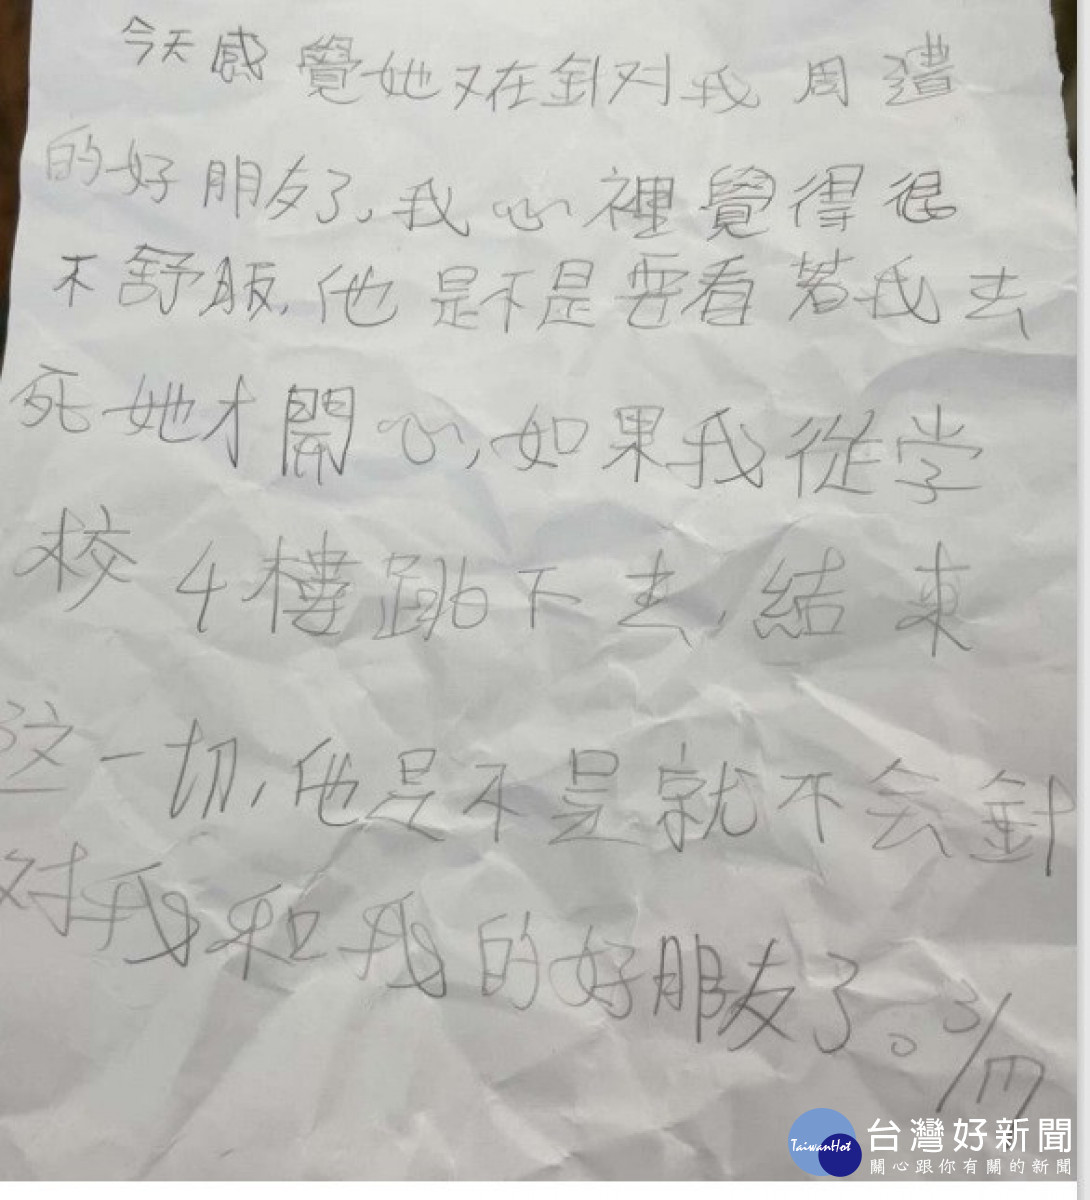 今天感覺她又在針对我周遭
的好朋友了,我心裡覺得很
不舒服,他是不是要看著我去
死她才開心,如果我從学
校4樓跳下去,結束
这一切,他是不是就不会針
对我和我的好朋友了。3/
TaiwanHot
台灣好新聞
關心跟你有關的新聞